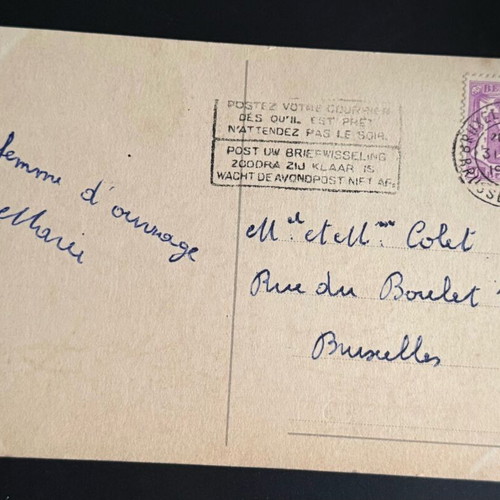 POSTEZ VOTRE COURRIER
DÈS QU'IL EST PRÊT
N'ATTENDEZ PAS LE SOIR.
POST UW BRIEFWISSELING
ZOODRA ZIJ KLAAR IS
WACHT DE AVONDPOST NIET AF.
BE
femme d'ouvrage
Marie
Mr et Mme Colet
Rue du Boulet
Bruxelles